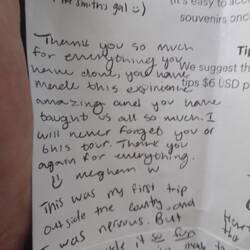 Smiths gal :)
(It's easy to acc
souvenirs onc
Thank you so much
for everything you
have done, you have
made this experience
amazing and you have
taught us all so much. I
will never forget you or
this tour. Thank you
again for everything.
meghan W
Tip
We suggest th
tips $6 USD p
This was my first trip
outside the country, and
I was nervous. But
it so fun